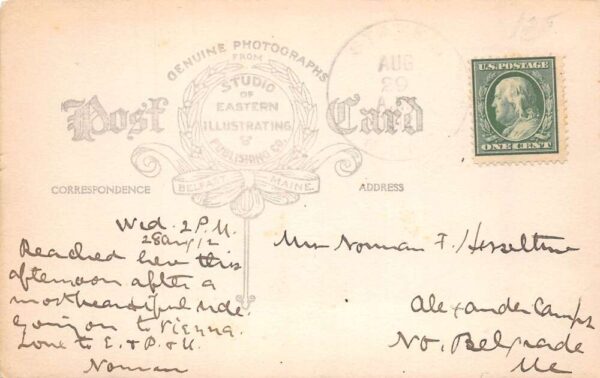 GENUINE PHOTOGRAPHS
FROM
STUDIO
OF
EASTERN
ILLUSTRATING
&
PUBLISHING CO.
BELFAST MAINE.
Post Card
AUG
29
U.S. POSTAGE
ONE CENT
CORRESPONDENCE
ADDRESS
Wed. 2 P.M.
28 Aug 12
Reached here this
afternoon after a
most beautiful ride.
Going on to Vienna.
Love to E. + P. + U.
Norman
Mrs Norman F. Hesseltine
Alexander Camps
No. Belgrade
Me